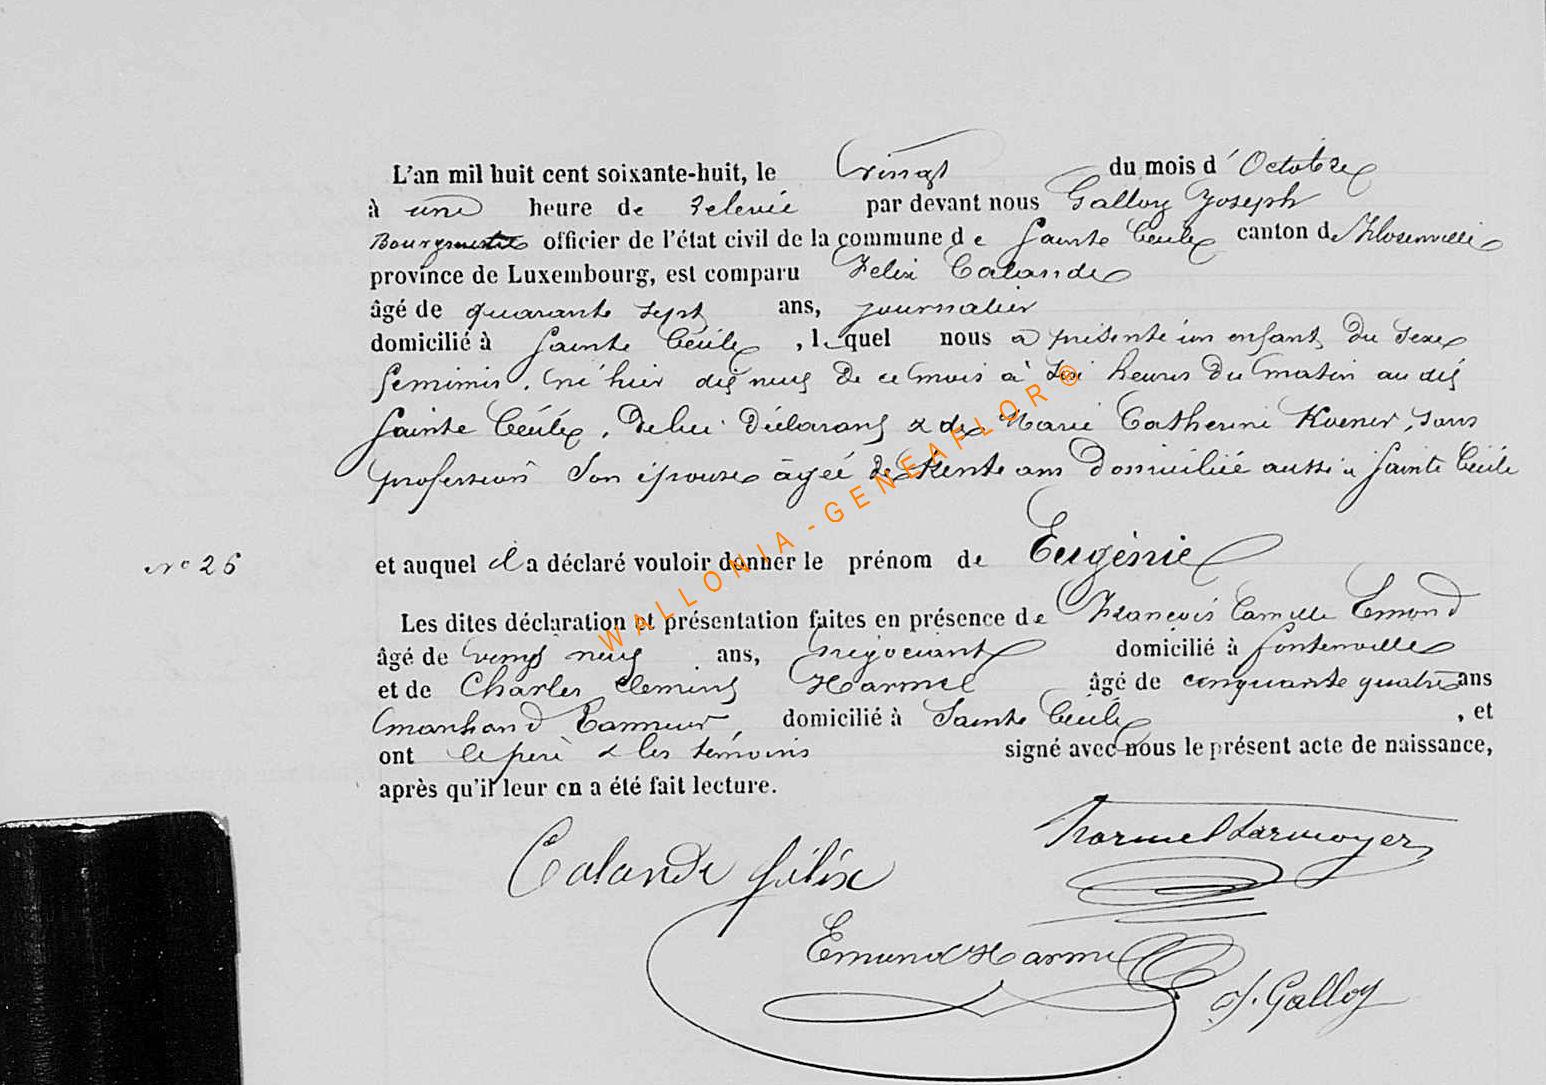 L'an mil huit cent soixante-huit, le vingt du mois d'Octobre
à une heure de relevée par devant nous Galloy Joseph
Bourgmestre officier de l'état civil de la commune de Sainte Cécile canton de Florenville
province de Luxembourg, est comparu Felix Calande
âgé de quarante sept ans, journalier
domicilié à Sainte Cécile, lequel nous a présenté un enfant du sexe
feminin, né hier dix neuf de ce mois à six heures du matin au dit
Sainte Cécile, de lui déclarant & de Marie Catherine Kuener, sans
profession son épouse âgée de trente ans domiciliée aussi à Sainte Cécile
N° 26 et auquel il a déclaré vouloir donner le prénom de Eugénie
Les dites déclaration et présentation faites en présence de François Camille Emond
âgé de vingt neuf ans, négociant domicilié à fontenoille
et de Charles Clement Harmel âgé de cinquante quatre ans
marchand Tanneur, domicilié à Sainte Cécile, et
ont le père & les témoins signé avec nous le présent acte de naissance,
après qu'il leur en a été fait lecture.
WALLONIA - GENEAFLOR ®
Calande félix
Harmel Darmoyer
Emond Harmel
J. Galloy